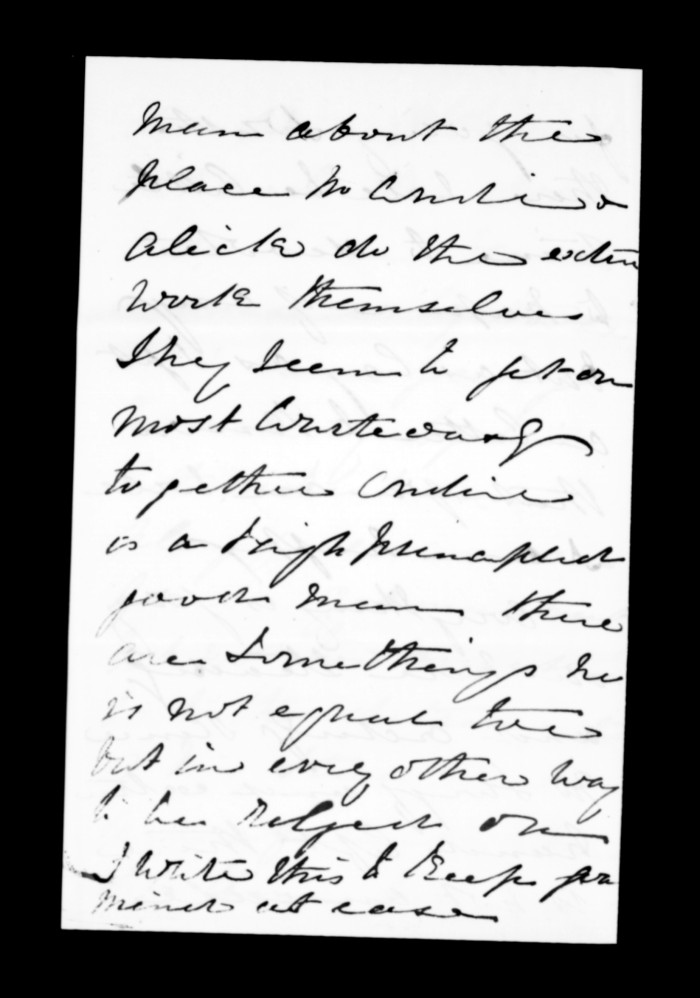 man about the
place
alick do the extra
work themselves
They seem to get on
most Courteously
together
is a high principled
good man there
are Some things he
is not equal too
but in every other way
to be
I write this to Keep your
mind at ease